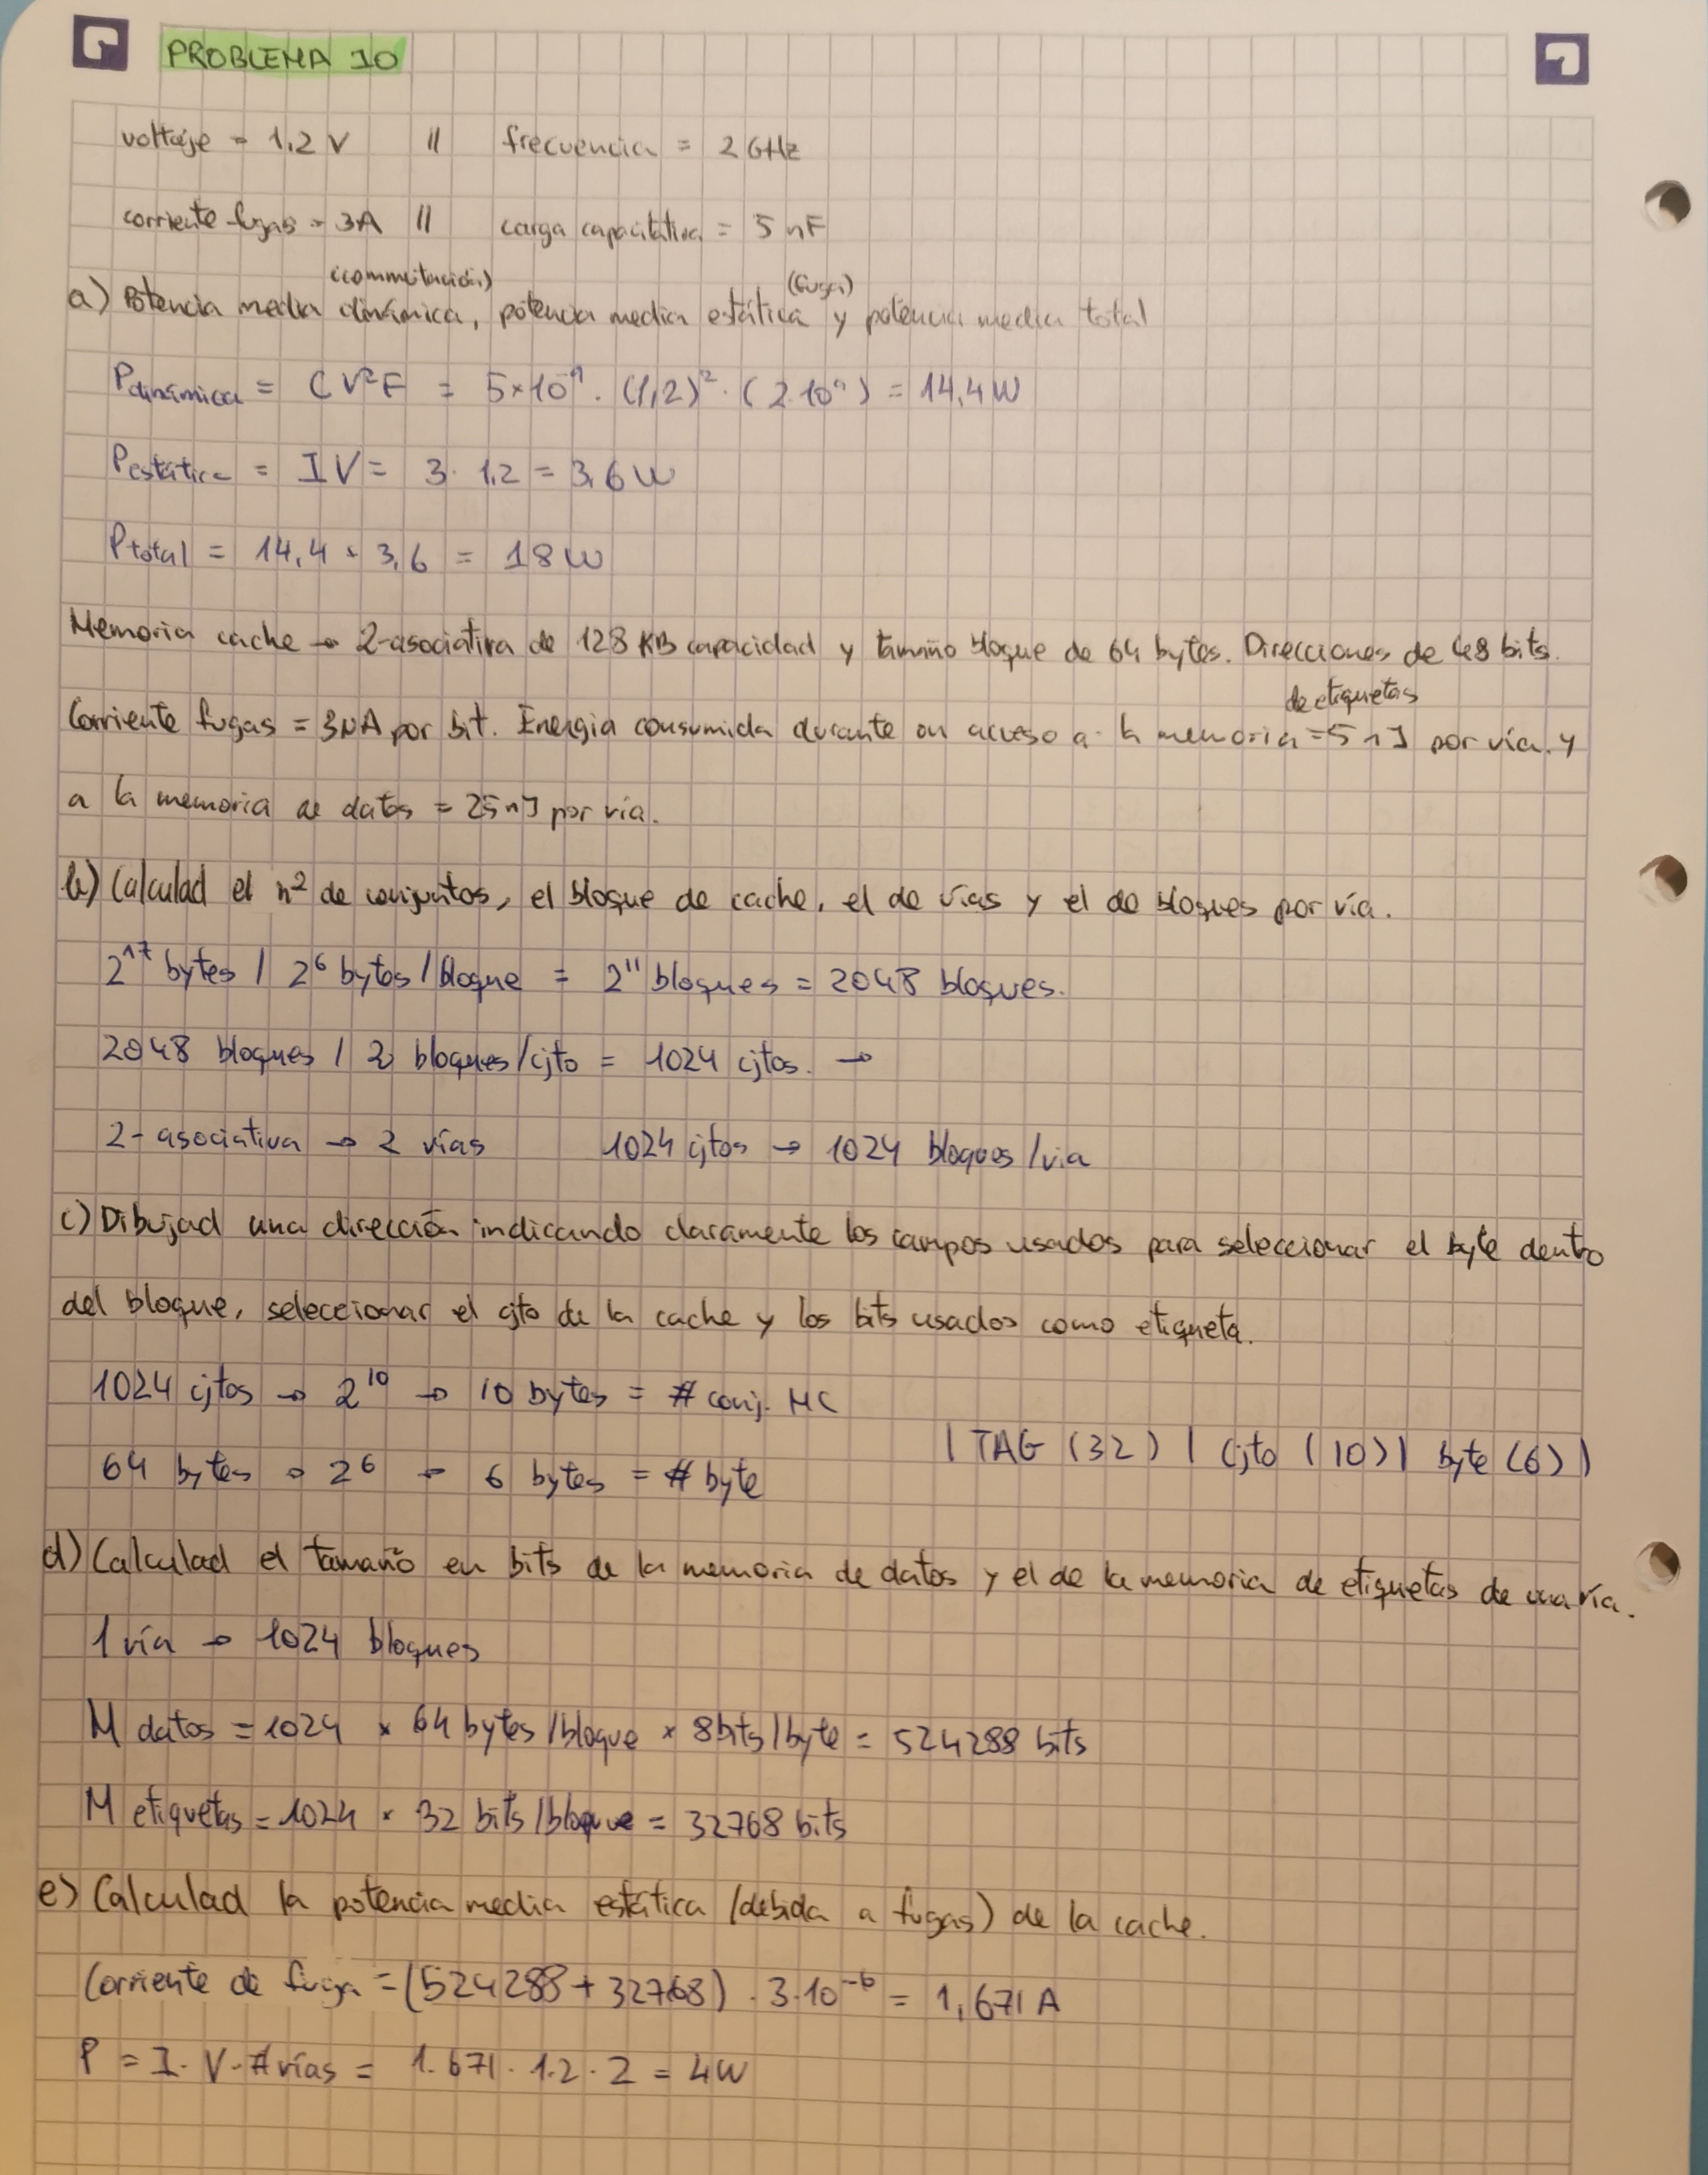 PROBLEMA 10
voltaje = 1,2 V || frecuencia = 2 GHz
corriente fugas = 3A || carga capacitativa = 5 nF
(conmutación) (fuga)
a) Potencia media dinámica, potencia media estática y potencia media total
Pdinámica = CV²F = 5×10⁻⁹ · (1,2)² · (2·10⁹) = 14,4 W
Pestática = IV = 3 · 1,2 = 3,6 W
Ptotal = 14,4 + 3,6 = 18 W
Memoria cache → 2-asociativa de 128 KB capacidad y tamaño bloque de 64 bytes. Direcciones de 48 bits.
de etiquetas
Corriente fugas = 3μA por bit. Energía consumida durante un acceso a la memoria = 5 nJ por vía y
a la memoria de datos = 25 nJ por vía.
b) Calculad el nº de conjuntos, el bloque de cache, el de vías y el de bloques por vía.
2¹⁷ bytes / 2⁶ bytes/bloque = 2¹¹ bloques = 2048 bloques.
2048 bloques / 2 bloques/cjto = 1024 cjtos. →
2-asociativa → 2 vías 1024 cjtos → 1024 bloques/via
c) Dibujad una dirección indicando claramente los campos usados para seleccionar el byte dentro
del bloque, seleccionar el cjto de la cache y los bits usados como etiqueta.
1024 cjtos → 2¹⁰ → 10 bytes = # conj. MC
| TAG (32) | Cjto (10) | byte (6) |
64 bytes → 2⁶ → 6 bytes = # byte
d) Calculad el tamaño en bits de la memoria de datos y el de la memoria de etiquetas de una vía.
1 vía → 1024 bloques
M datos = 1024 × 64 bytes/bloque × 8bits/byte = 524288 bits
M etiquetas = 1024 × 32 bits/bloque = 32768 bits
e) Calculad la potencia media estática (debida a fugas) de la cache.
Corriente de fuga = (524288 + 32768) · 3·10⁻⁶ = 1,671 A
P = I · V · #vías = 1.671 · 1.2 · 2 = 4W